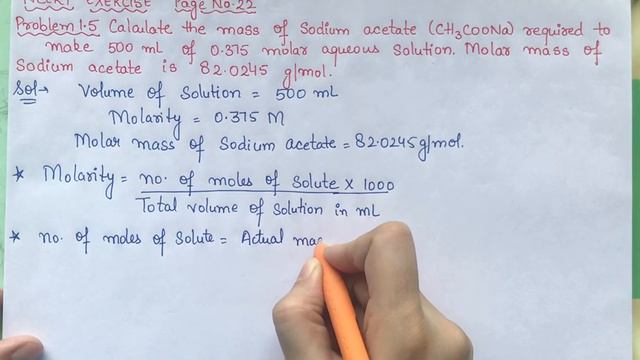 NCERT EXERCISE Page No.22
Problem 1.5 Calculate the mass of Sodium acetate (CH₃COONa) required to
make 500 mL of 0.375 molar aqueous solution. Molar mass of
Sodium acetate is 82.0245 g/mol.
Sol→ Volume of Solution = 500 mL
Molarity = 0.375 M
Molar mass of Sodium acetate = 82.0245 g/mol.
* Molarity = no. of moles of Solute × 1000
Total volume of Solution in mL
* no. of moles of Solute = Actual mas